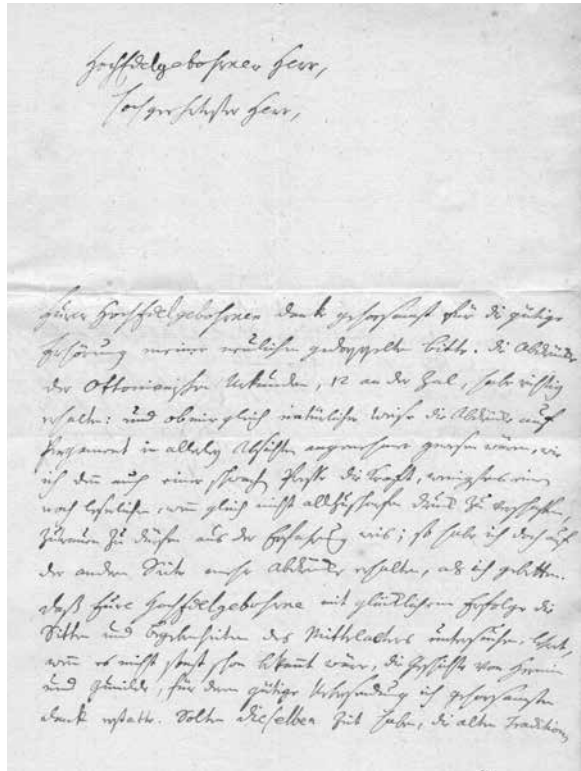 HochEdelgebohrner Herr,
Hochgeehrtester Herr,
Eurer HochEdelgebohrnen dank gehorsamst für di gütige
Erhörung meiner neulichen gedoppelten bitte. di Abdrücke
der Ottonianischen Urkunden, 12 an der Zal, habe richtig
erhalten: und ob mir gleich natürlicher weise die Abdrücke auf
Pergament in allerley Absichten angenehmer gewesen wären, wie
ich den auch einer schwachen Presse die Kraft, wenigstens einen
noch leserlichen, wenn gleich nicht allzuscharfen Druck zu verschaffen,
zutrauen zu dürfen aus der Erfahrung weis; so habe ich doch auf
der andern Seite mehr Abdrücke erhalten, als ich gebetten.
daß Eure HochEdelgebohrne mit glücklichem Erfolge di
Sitten und Begebenheiten des Mittelalters untersuchen, lehrt,
wenn es nicht sonst schon bekannt wäre, di Geschichte von
und für deren gütige Uebersendung ich gehorsamsten
dank erstatte. Solten dieselben Zeit haben, di alten Tradition